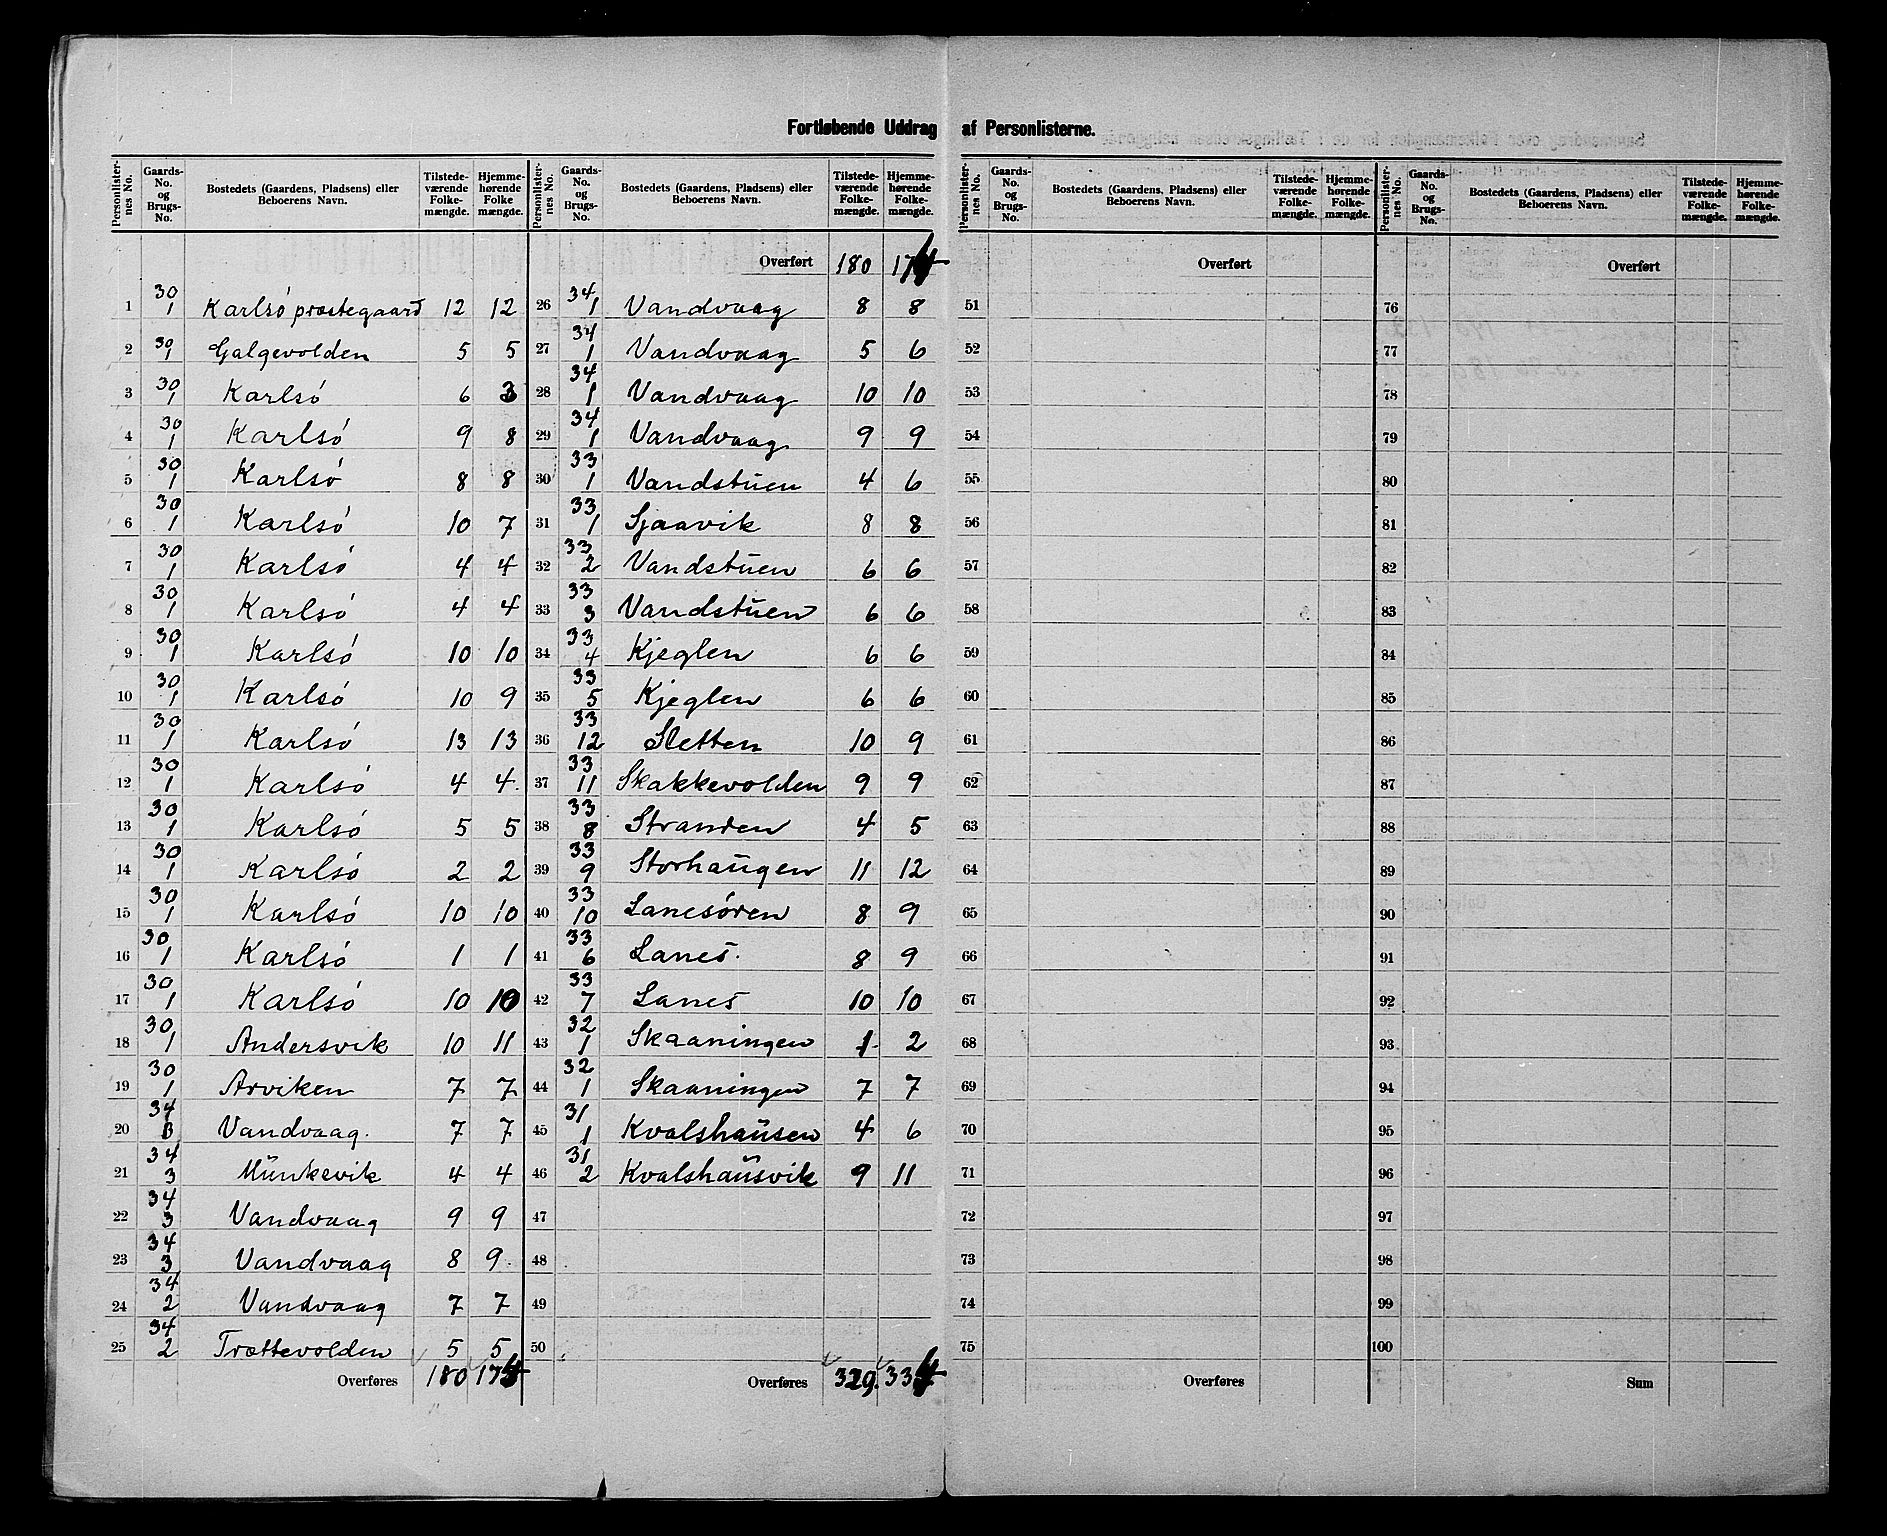 Fortløbende Uddrag af Personlisterne.
Personlister-nes No. | Gaards-No. og Brugs-No. | Bostedets (Gaardens, Pladsens) eller Beboerens Navn. | Tilstede-værende Folke-mængde. | Hjemme-hørende Folke mængde.
1 30/1 Karlsö præstegaard 12 12
2 30/1 Galgevolden 5 5
3 30/1 Karlsö 6 3
4 30/1 Karlsö 9 8
5 30/1 Karlsö 8 8
6 30/1 Karlsö 10 7
7 30/1 Karlsö 4 4
8 30/1 Karlsö 4 4
9 30/1 Karlsö 10 10
10 30/1 Karlsö 10 9
11 30/1 Karlsö 13 13
12 30/1 Karlsö 4 4
13 30/1 Karlsö 5 5
14 30/1 Karlsö 2 2
15 30/1 Karlsö 10 10
16 30/1 Karlsö 1 1
17 30/1 Karlsö 10 10
18 30/1 Andersvik 10 11
19 30/1 Arviken 7 7
20 34/ Vandvaag. 7 7
21 34/3 Munkevik 4 4
22 34/3 Vandvaag 9 9
23 34/3 Vandvaag 8 9
24 34/2 Vandvaag 7 7
25 34/2 Trættevolden 5 5
Overføres 180 174
Personlister-nes No. | Gaards-No. og Brugs-No. | Bostedets (Gaardens, Pladsens) eller Beboerens Navn. | Tilstede-værende Folke-mængde. | Hjemme-hørende Folke-mængde.
Overført 180 174
26 34/1 Vandvaag 8 8
27 34/1 Vandvaag 5 6
28 34/1 Vandvaag 10 10
29 34/1 Vandvaag 9 9
30 33/1 Vandstuen 4 6
31 33/1 Sjaavik 8 8
32 33/2 Vandstuen 6 6
33 33/3 Vandstuen 6 6
34 33/4 Kjeglen 6 6
35 33/5 Kjeglen 6 6
36 33/12 Sletten 10 9
37 33/11 Skakkevolden 9 9
38 33/8 Stranden 4 5
39 33/9 Storhaugen 11 12
40 33/10 Lanesören 8 9
41 33/6 Lanes 8 9
42 33/7 Lanes 10 10
43 32/1 Skaaningen 1 2
44 32/1 Skaaningen 7 7
45 31/1 Kvalshausen 4 6
46 31/2 Kvalshausvik 9 11
47
48
49
50
Overføres 329. 334
Personlister-nes No. | Gaards-No. og Brugs-No. | Bostedets (Gaardens, Pladsens) eller Beboerens Navn. | Tilstede-værende Folke-mængde. | Hjemme-hørende Folke-mængde.
Overført
51
52
53
54
55
56
57
58
59
60
61
62
63
64
65
66
67
68
69
70
71
72
73
74
75
Overføres
Personlister-nes No. | Gaards-No. og Brugs-No. | Bostedets (Gaardens, Pladsens) eller Beboerens Navn. | Tilstede-værende Folke-mængde. | Hjemme-hørende Folke-mængde.
Overført
76
77
78
79
80
81
82
83
84
85
86
87
88
89
90
91
92
93
94
95
96
97
98
99
100
Sum